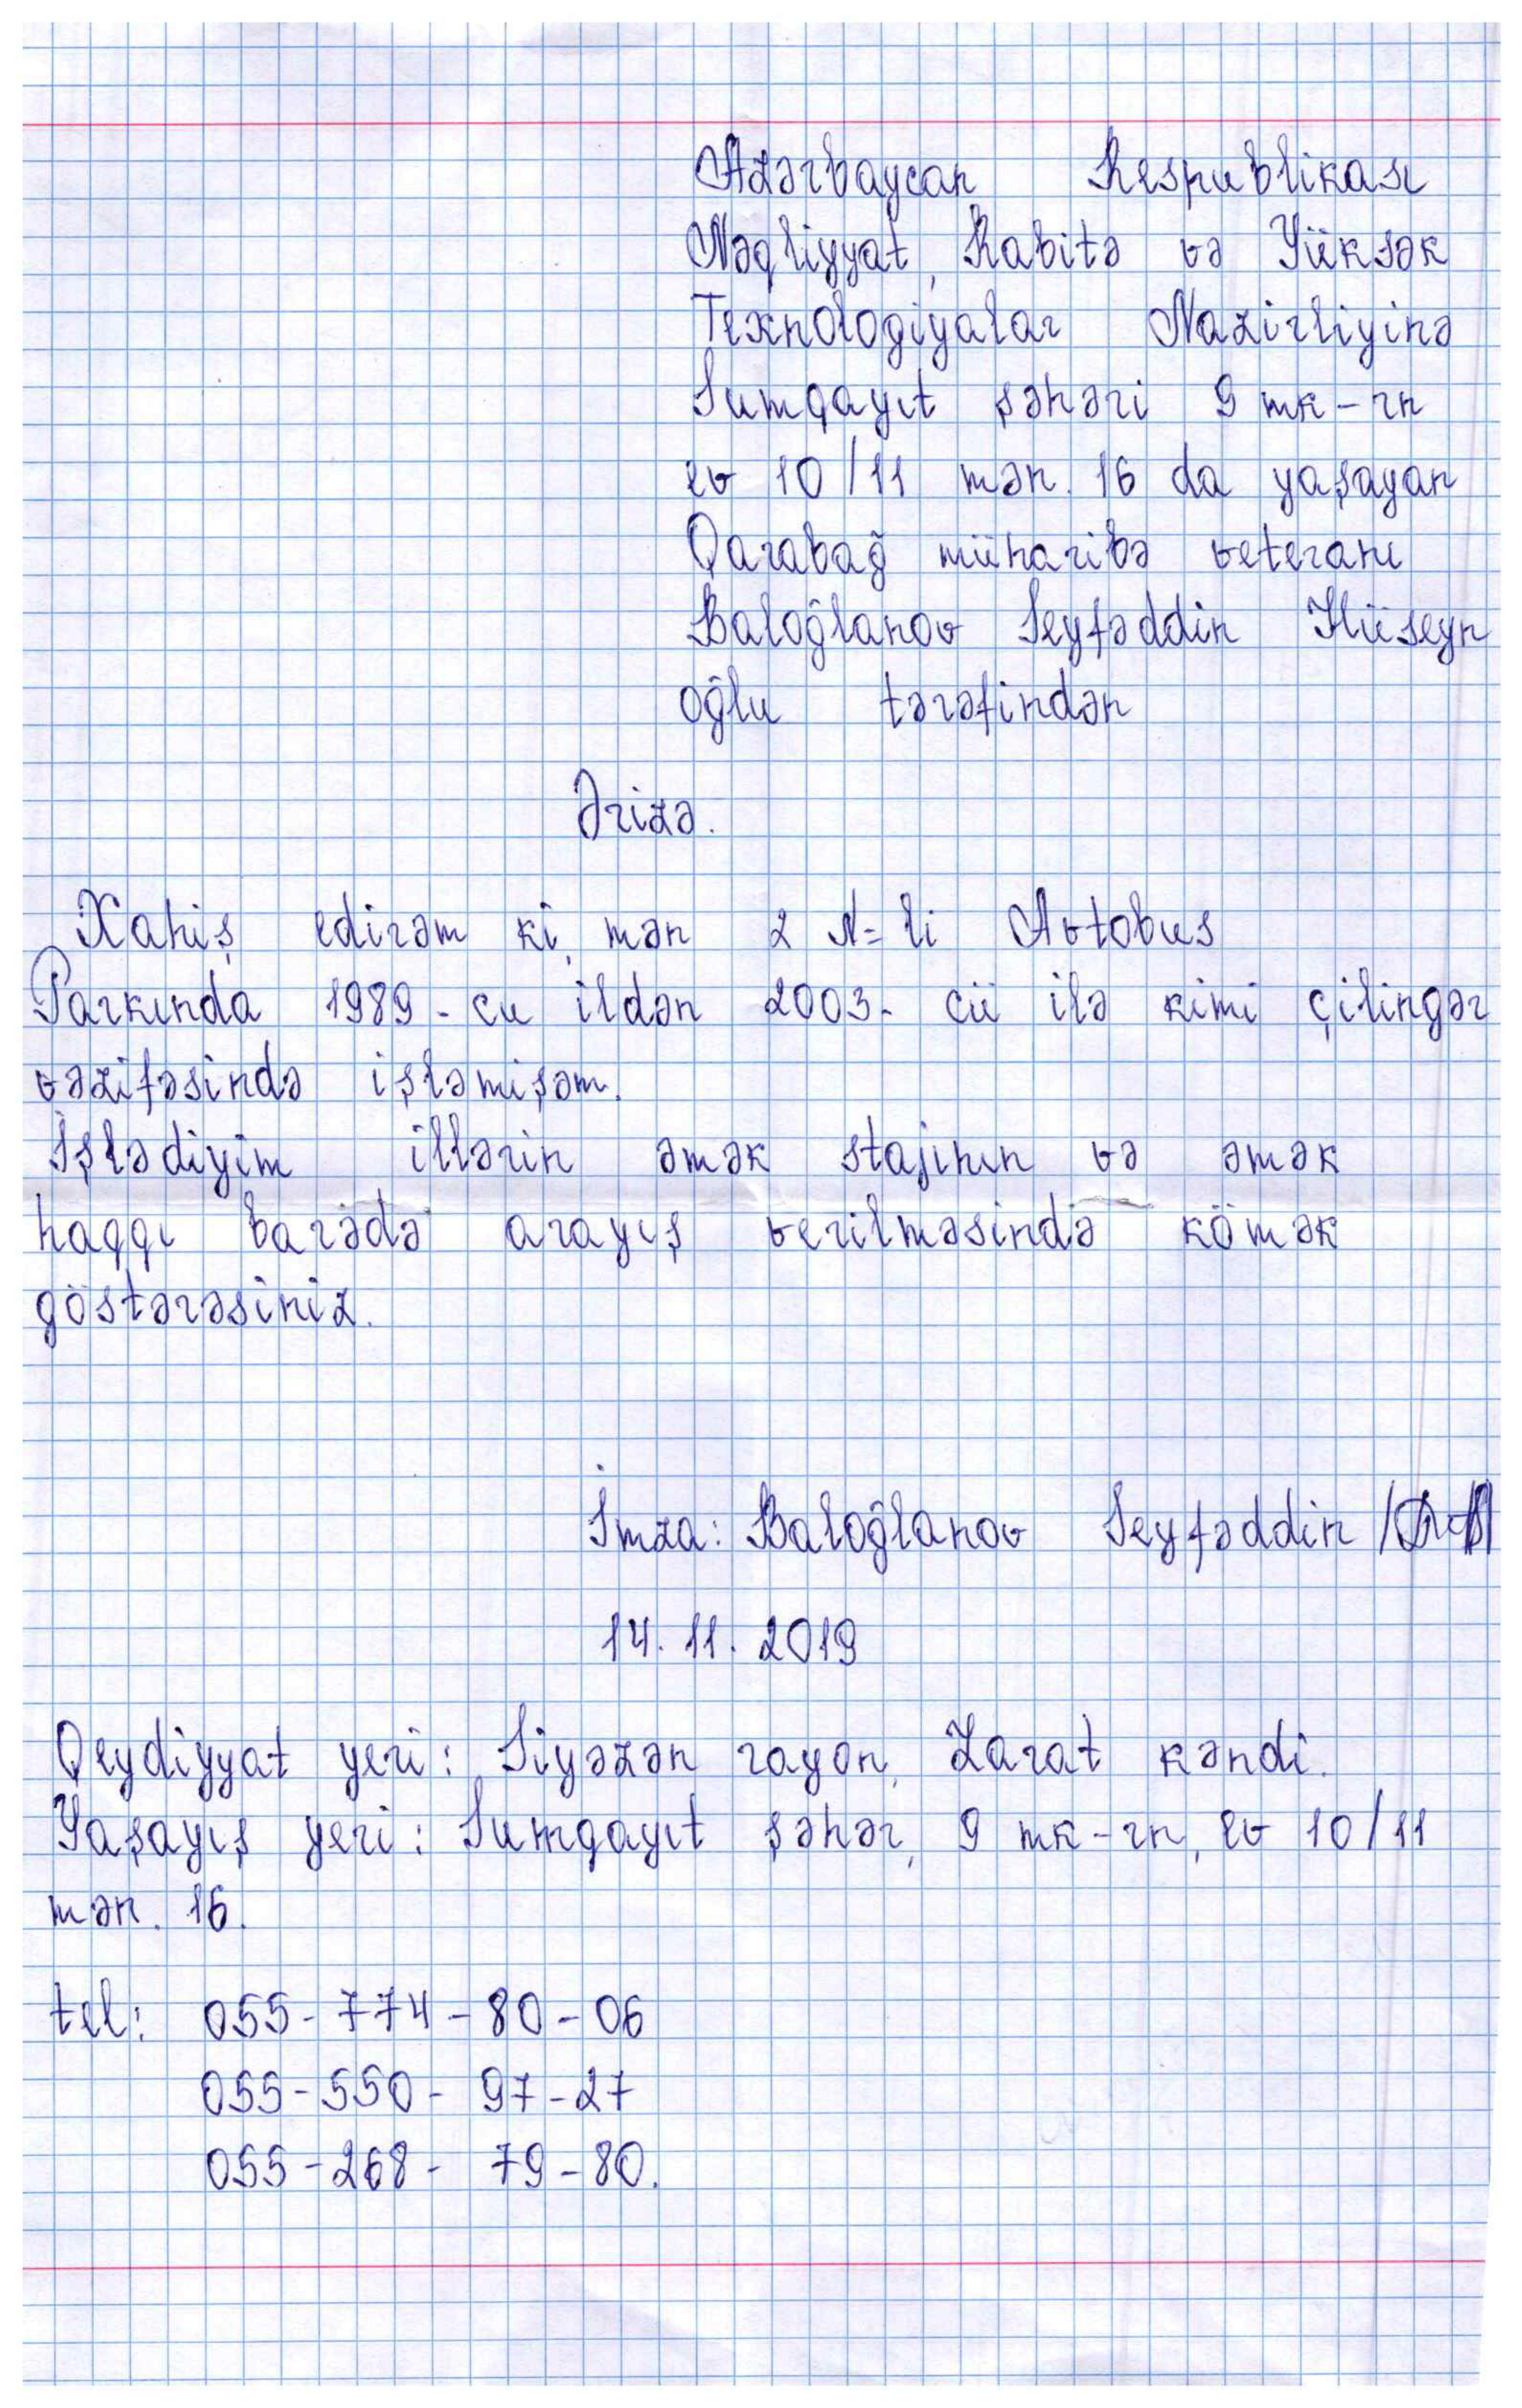 Azərbaycan Respublikası
Nəqliyyat, Rabitə və Yüksək
Texnologiyalar Nazirliyinə
Sumqayıt şəhəri 9 mk-rn
ev 10/11 mən. 16 da yaşayan
Qarabağ müharibə veteranı
Baloğlanov Seyfəddin Hüseyn
oğlu tərəfindən
Ərizə.
Xahiş edirəm ki, mən 2 №-li Avtobus
Parkında 1989-cu ildən 2003-cü ilə kimi çilingər
vəzifəsində işləmişəm.
İşlədiyim illərin əmək stajının və əmək
haqqı barədə arayış verilməsində kömək
göstərəsiniz.
İmza: Baloğlanov Seyfəddin
14.11.2019
Qeydiyyat yeri: Siyəzən rayon, Zarat kəndi.
Yaşayış yeri: Sumqayıt şəhər, 9 mk-rn, ev 10/11
mən. 16.
tel: 055-774-80-06
055-550-97-27
055-268-79-80.